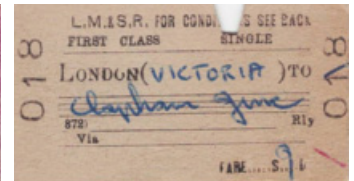 L.M.&S.R. FOR CONDITIONS SEE BACK
FIRST CLASS SINGLE
LONDON (VICTORIA) TO
Clapham Junc
872) Rly
Via
FARE.....S. 9
018
018